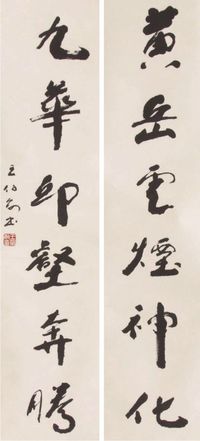 黄岳雲煙神化
九華邱壑奔騰
王伯敏書